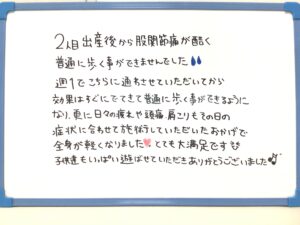 2人目出産後から股関節痛が酷く
普通に歩く事ができませんでした
週1でこちらに通わせていただいてから
効果はすぐにでてきて普通に歩く事ができるように
なり、更に日々の疲れや頭痛、肩こりもその日の
症状に合わせて施術していただいたおかげで
全身が軽くなりました とても大満足です
子供達もいっぱい遊ばせていただきありがとうございました